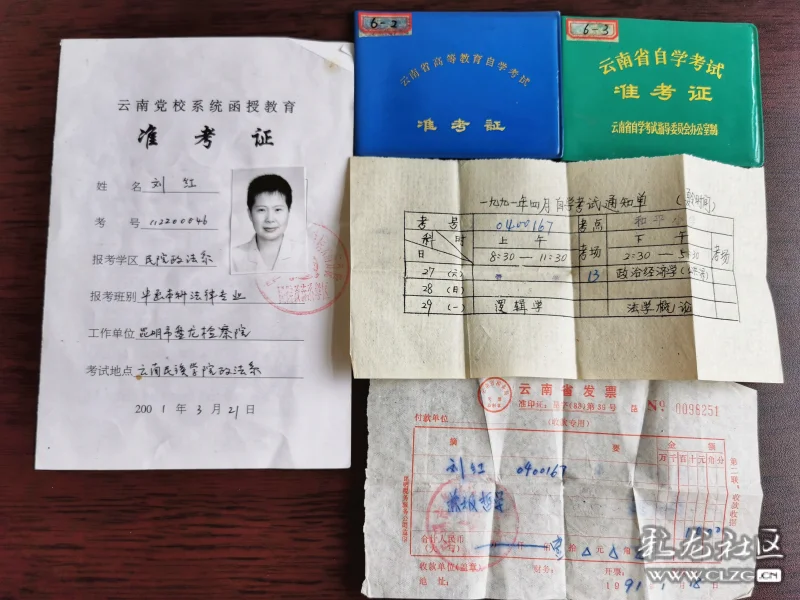 云南党校系统函授教育
准考证
姓名 刘红
考号 112200846
报考学区 民院政法系
报考班别 本科法律专业
工作单位 昆明市盘龙检察院
考试地点 云南民族学院政法系
2001年3月21日
6-2
云南省高等教育自学考试
准考证
6-3
云南省自学考试
准考证
云南省自学考试指导委员会办公室制
一九九一年四月自学考试通知单
考号 0400167 考点
科 时 上午 考场 下午 考场
日 8:30—11:30 2:30—5:30
27(六) 13 政治经济学
28(日)
29(一) 逻辑学 法学概论
云南省发票
No 0098251
付款单位
(收款专用)
摘要 金额
万千百十元角分
刘红 0400167
合计人民币
(大写)
收款单位(盖章) 财务: 开票:
地址:
第二联:收款收据
礼龙社区
WWW.CLZG.CN